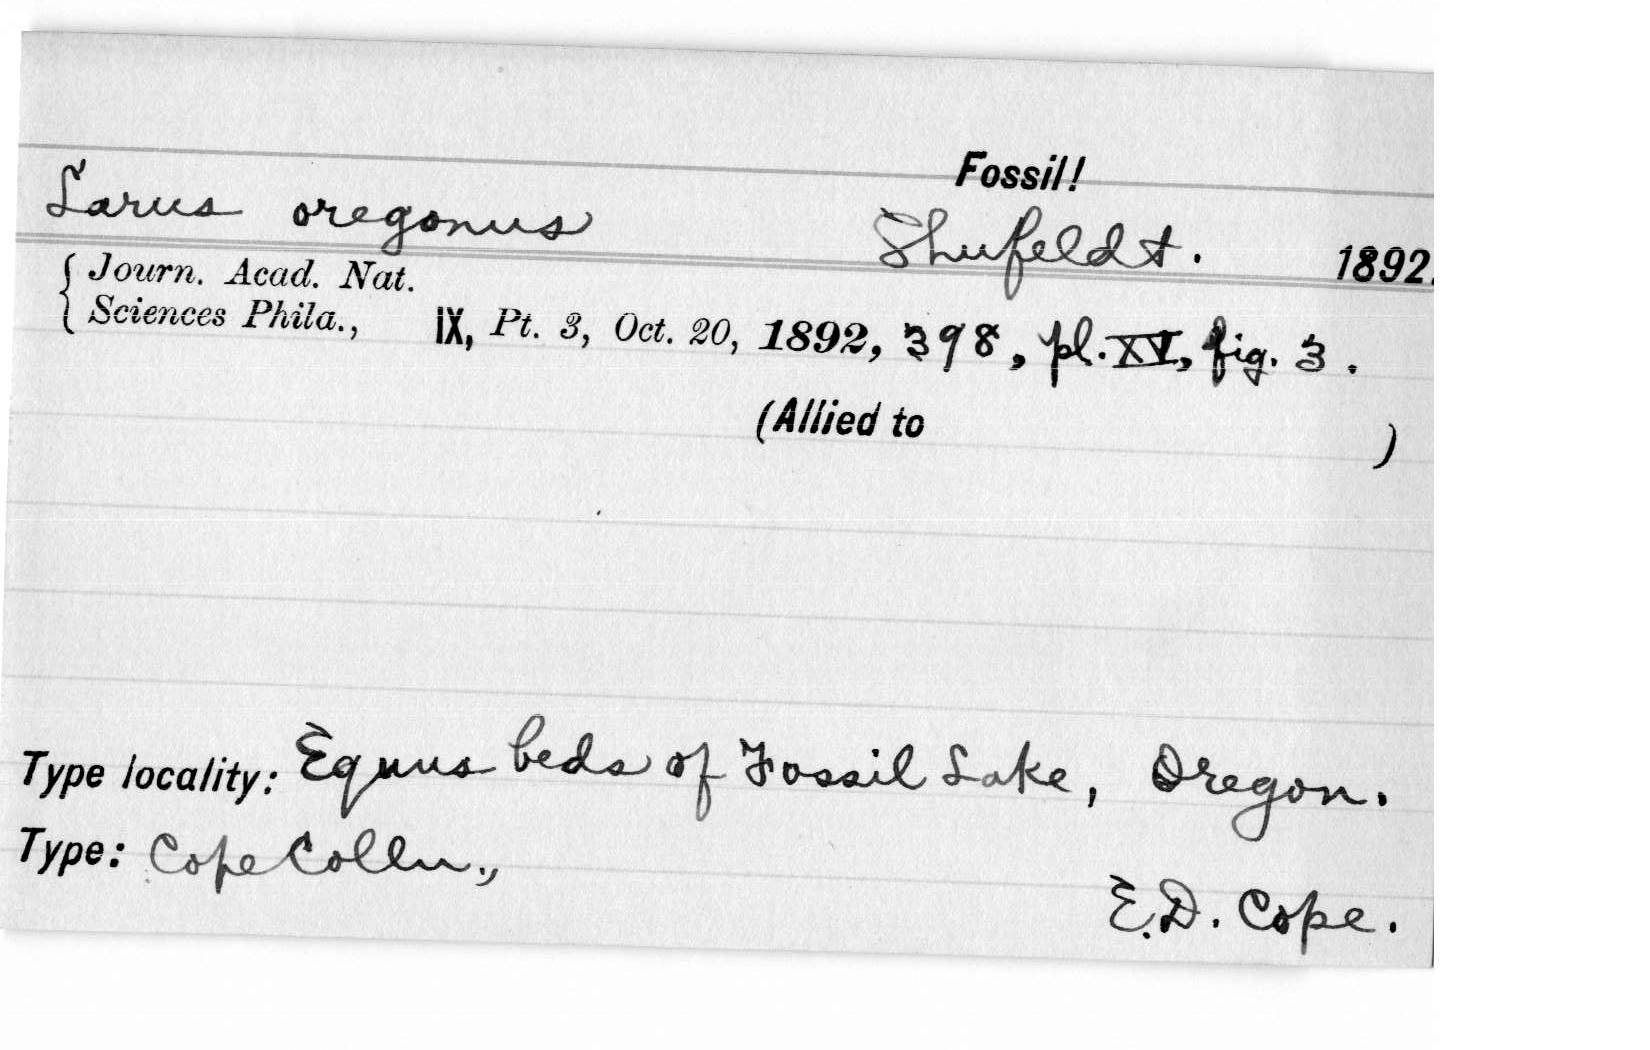 Fossil!
Larus oregonus Shufeldt. 1892.
Journ. Acad. Nat.
Sciences Phila., IX, Pt. 3, Oct. 20, 1892, 398, pl. XV, fig. 3.
(Allied to )
Type locality: Equus beds of Fossil Lake, Oregon.
Type: Cope Colln.,
E.D. Cope.